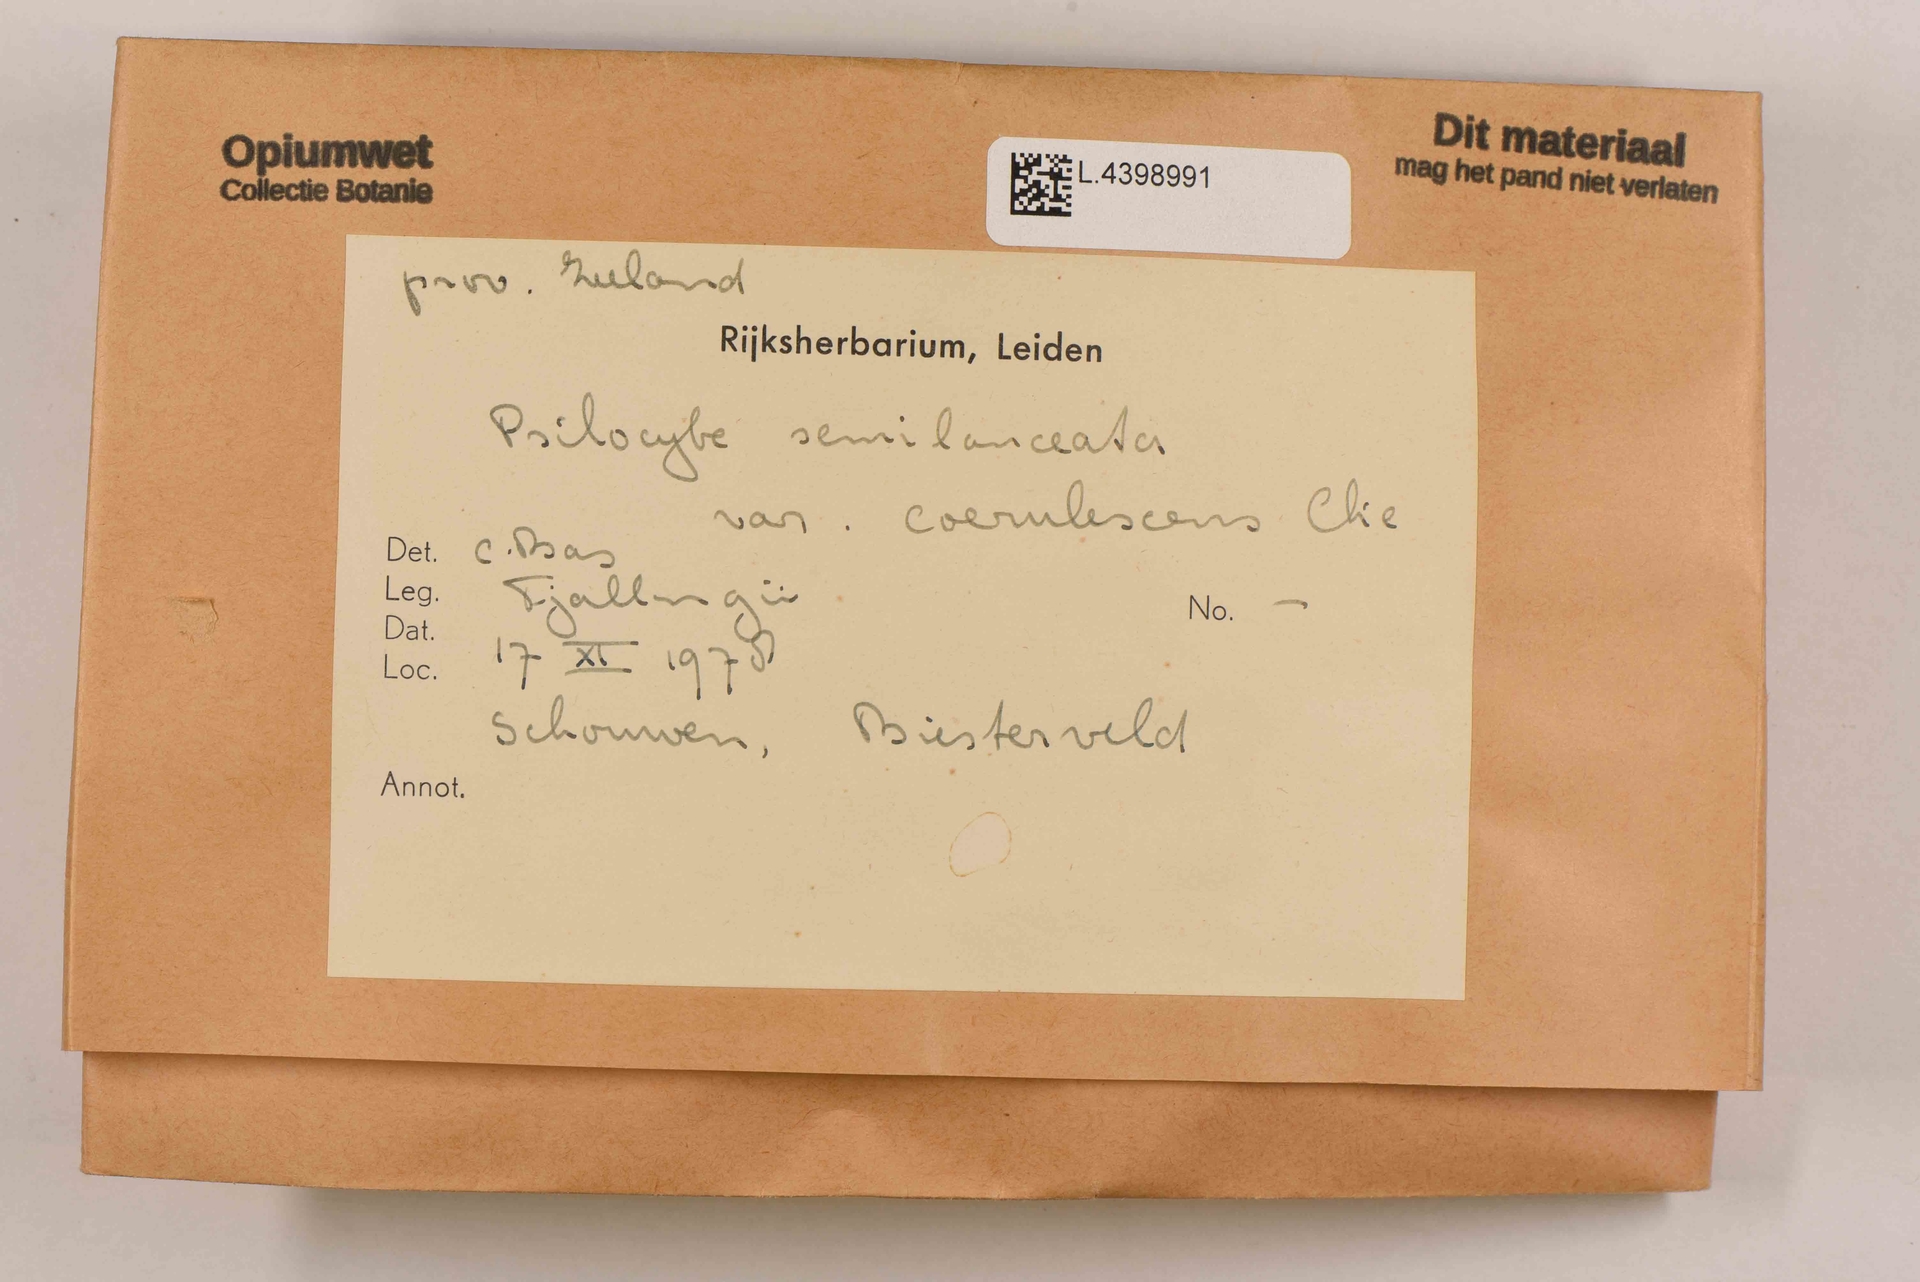 Opiumwet
Collectie Botanie
L.4398991
Dit materiaal
mag het pand niet verlaten
prov. Zeeland
Rijksherbarium, Leiden
Psilocybe semilanceata
var. coerulescens Cke
Det. C. Bas
Leg. Tjallingii
No. –
Dat. 17 XI 1978
Loc. Schouwen, Biesterveld
Annot.